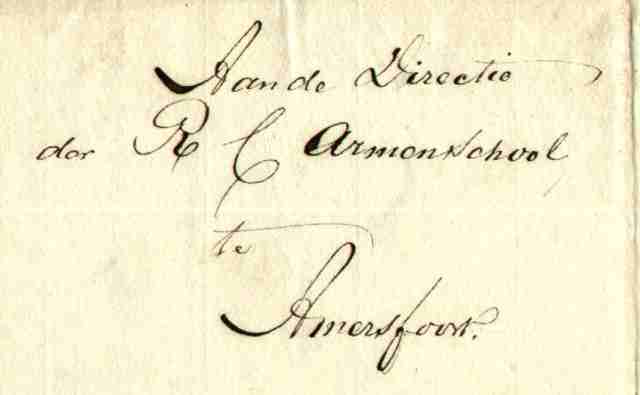 Aan de Directie
der R C Armenschool
te
Amersfoort.